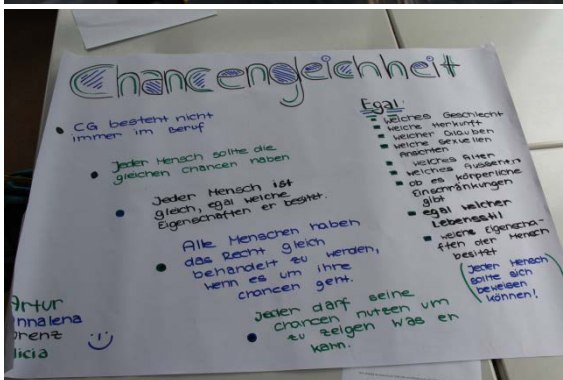 Chancengleichheit
CG besteht nicht
immer im Beruf
Jeder Mensch sollte die
gleichen Chancen haben
Jeder Mensch ist
gleich, egal welche
Eigenschaften er besitzt.
Alle Menschen haben
das Recht gleich
behandelt zu werden,
wenn es um ihre
Chancen geht.
Jeder darf seine
Chancen nutzen um
zu zeigen was er
kann.
Egal:
welches Geschlecht
welche Herkunft
welcher Glauben
welche sexuellen
Ansichten
welches Alter
welches Aussehen
ob es körperliche
Einschränkungen
gibt
egal welcher
Lebensstil
welche Eigenscha-
ften der Mensch
besitzt
(Jeder Mensch
sollte sich
beweisen
können!)
Artur
nnalena
orenz
licia